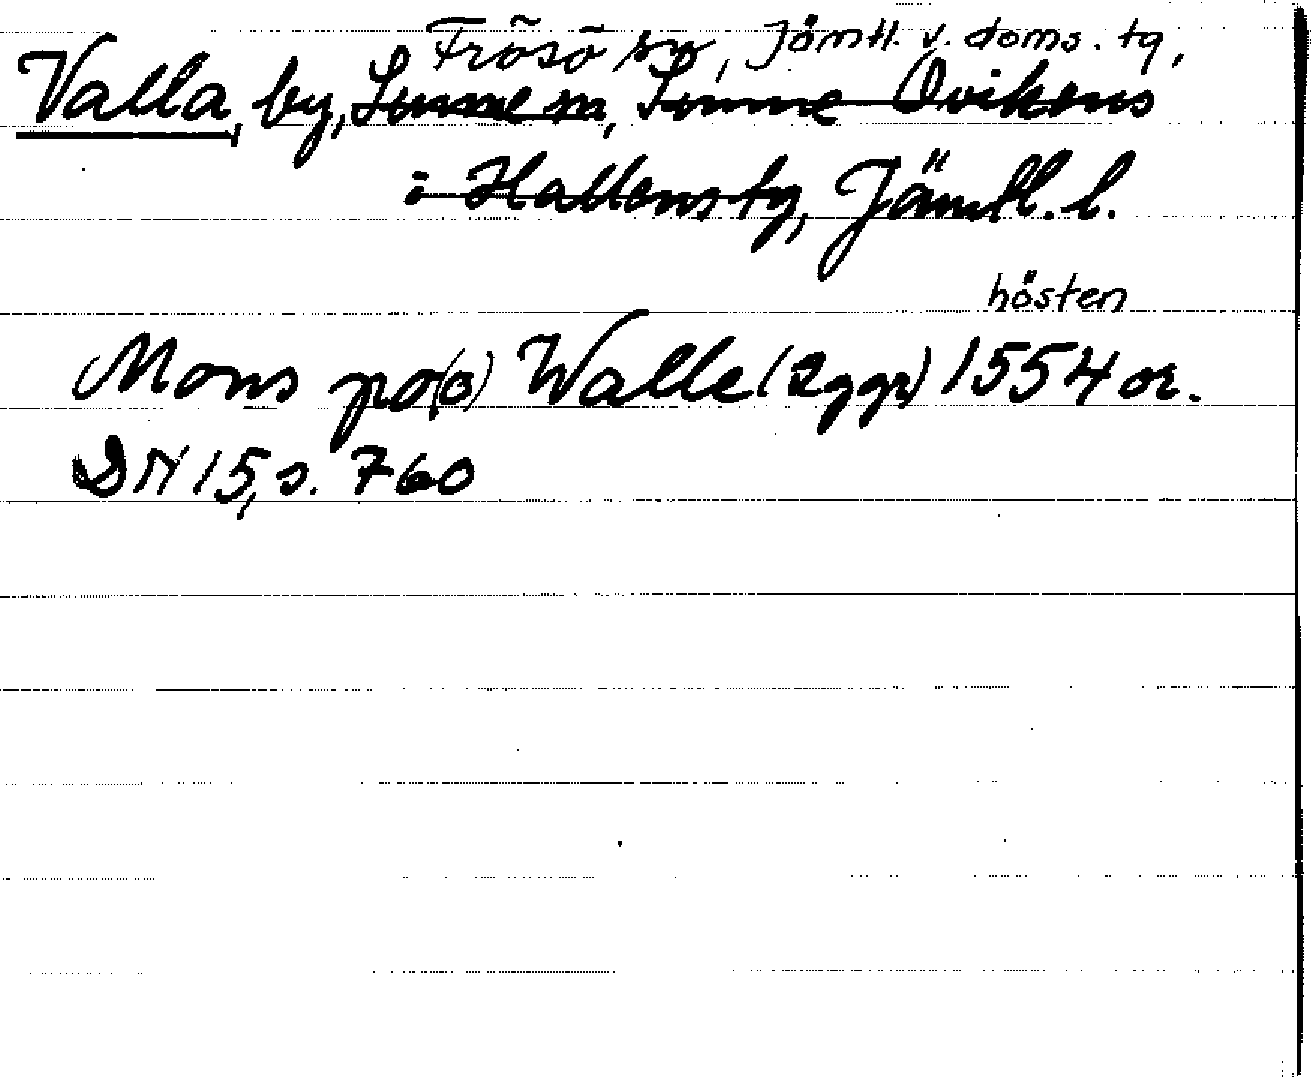 Frösö sn, Jämtl. v. doms. tg,
Valla, by, Sunne sn, Sunne Ovikens
o Hallens tg, Jämtl. l.
hösten
Mons po(o) Walle (2 ggr) 1554 or.
DN 15, s. 760